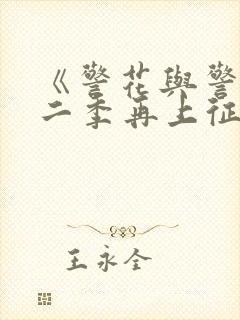 《警花與警
二季再上征
王永全